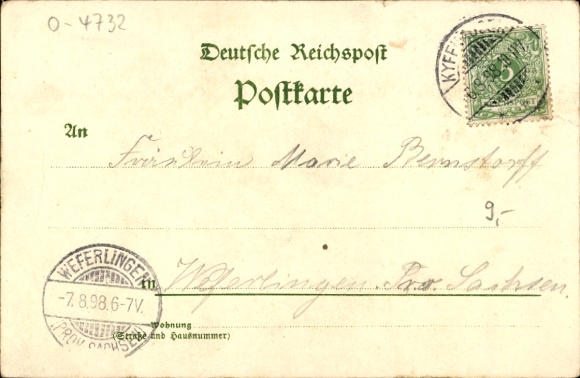 0-4732
Deutsche Reichspost
Postkarte
An
Fräulein Marie Bernstorff
9,-
in Weferlingen Prov. Sachsen
WEFERLINGEN
-7.8.98.6-7V.
(PROV. SACHSEN)
Wohnung
(Straße und Hausnummer)
5